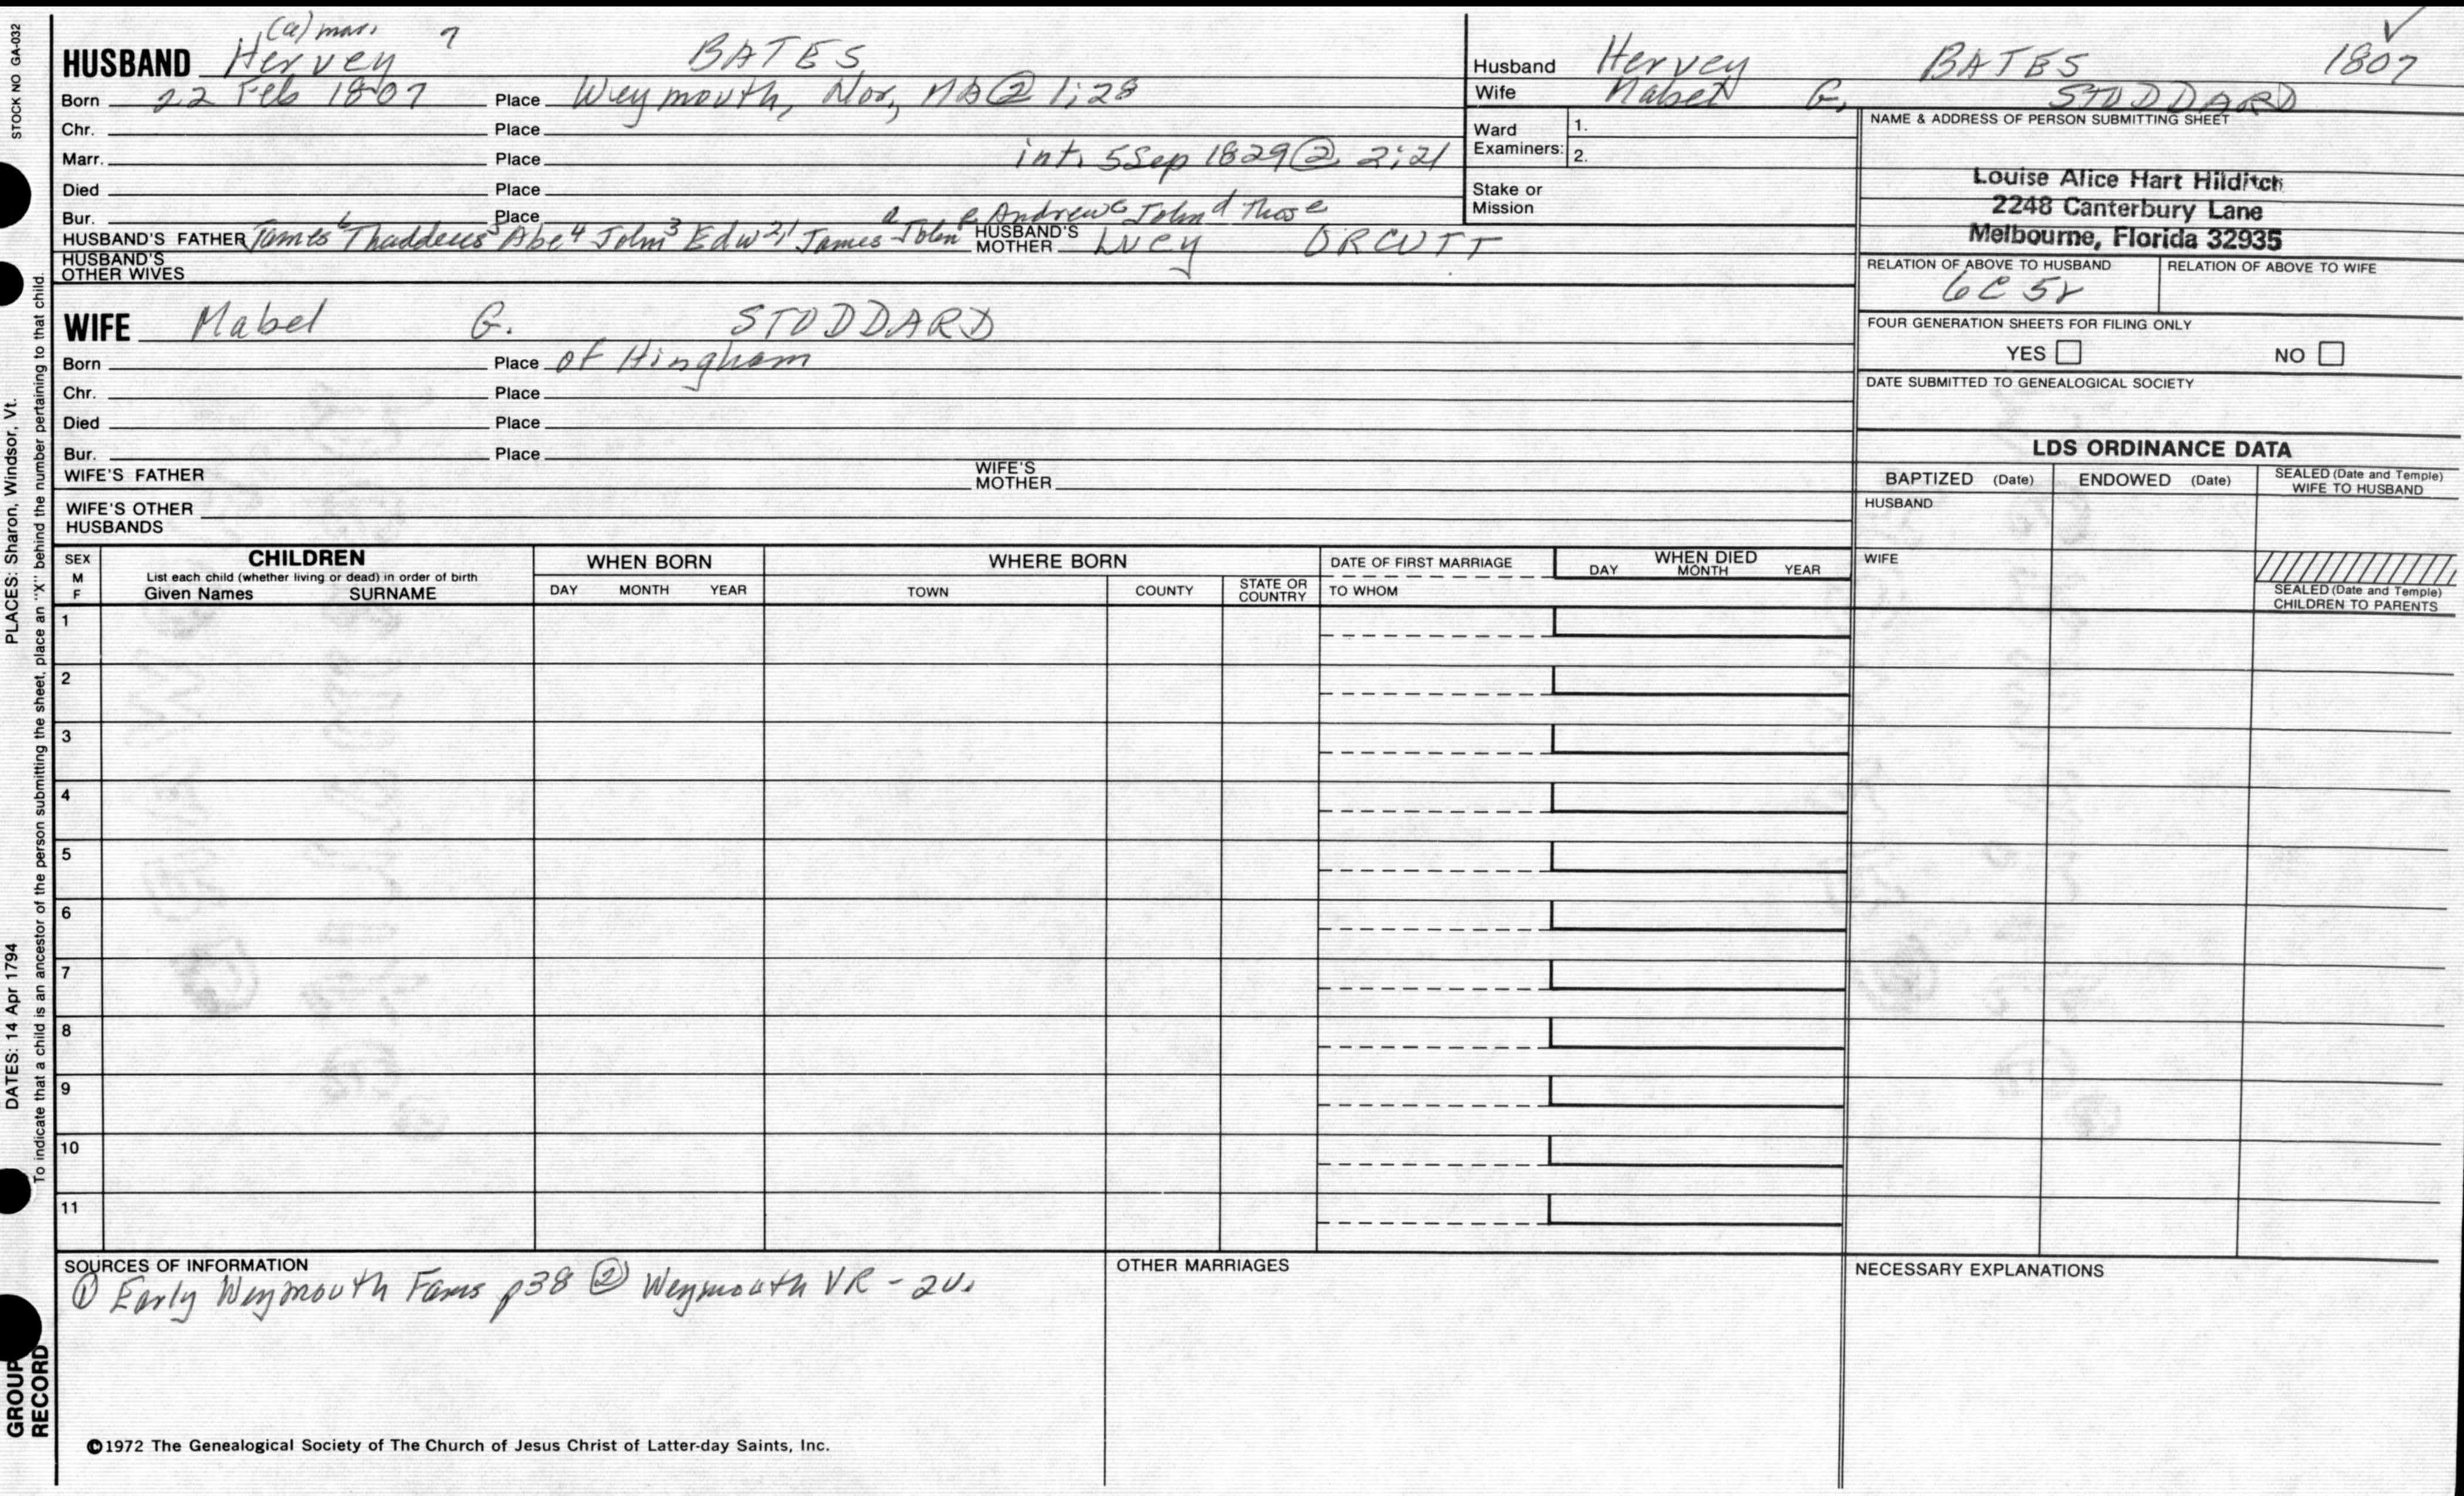 STOCK NO GA-032
PLACES: Sharon, Windsor, Vt.
DATES: 14 Apr 1794
To indicate that a child is an ancestor of the person submitting the sheet, place an "X" behind the number pertaining to that child.
GROUP
RECORD
(a) mar. 7
HUSBAND Hervey BATES
Born 22 Feb 1807 Place Weymouth, Nor, MA @ 1:28
Chr. Place
Marr. Place int. 5 Sep 1829 @ 2:21
Died Place
Bur. Place
HUSBAND'S FATHER James 6 Thaddeus 5 Abe 4 John 3 Edw 2 1 James John Andrew c John d Thos e HUSBAND'S MOTHER Lucy ORCUTT
HUSBAND'S
OTHER WIVES
WIFE Mabel G. STODDARD
Born Place of Hingham
Chr. Place
Died Place
Bur. Place
WIFE'S FATHER WIFE'S MOTHER
WIFE'S OTHER
HUSBANDS
Husband Hervey BATES 1807
Wife Mabel G. STODDARD
Ward
Examiners: 1.
2.
Stake or
Mission
NAME & ADDRESS OF PERSON SUBMITTING SHEET
Louise Alice Hart Hilditch
2248 Canterbury Lane
Melbourne, Florida 32935
RELATION OF ABOVE TO HUSBAND RELATION OF ABOVE TO WIFE
6C 5r
FOUR GENERATION SHEETS FOR FILING ONLY
YES NO
DATE SUBMITTED TO GENEALOGICAL SOCIETY
LDS ORDINANCE DATA
BAPTIZED (Date) ENDOWED (Date) SEALED (Date and Temple)
WIFE TO HUSBAND
HUSBAND
WIFE
SEALED (Date and Temple)
CHILDREN TO PARENTS
SEX
M
F
CHILDREN
List each child (whether living or dead) in order of birth
Given Names SURNAME
WHEN BORN
DAY MONTH YEAR
WHERE BORN
TOWN COUNTY STATE OR
COUNTRY
DATE OF FIRST MARRIAGE
TO WHOM
WHEN DIED
DAY MONTH YEAR
1
2
3
4
5
6
7
8
9
10
11
SOURCES OF INFORMATION
① Early Weymouth Fams p38 ② Weymouth VR - 2v.
OTHER MARRIAGES
NECESSARY EXPLANATIONS
©1972 The Genealogical Society of The Church of Jesus Christ of Latter-day Saints, Inc.